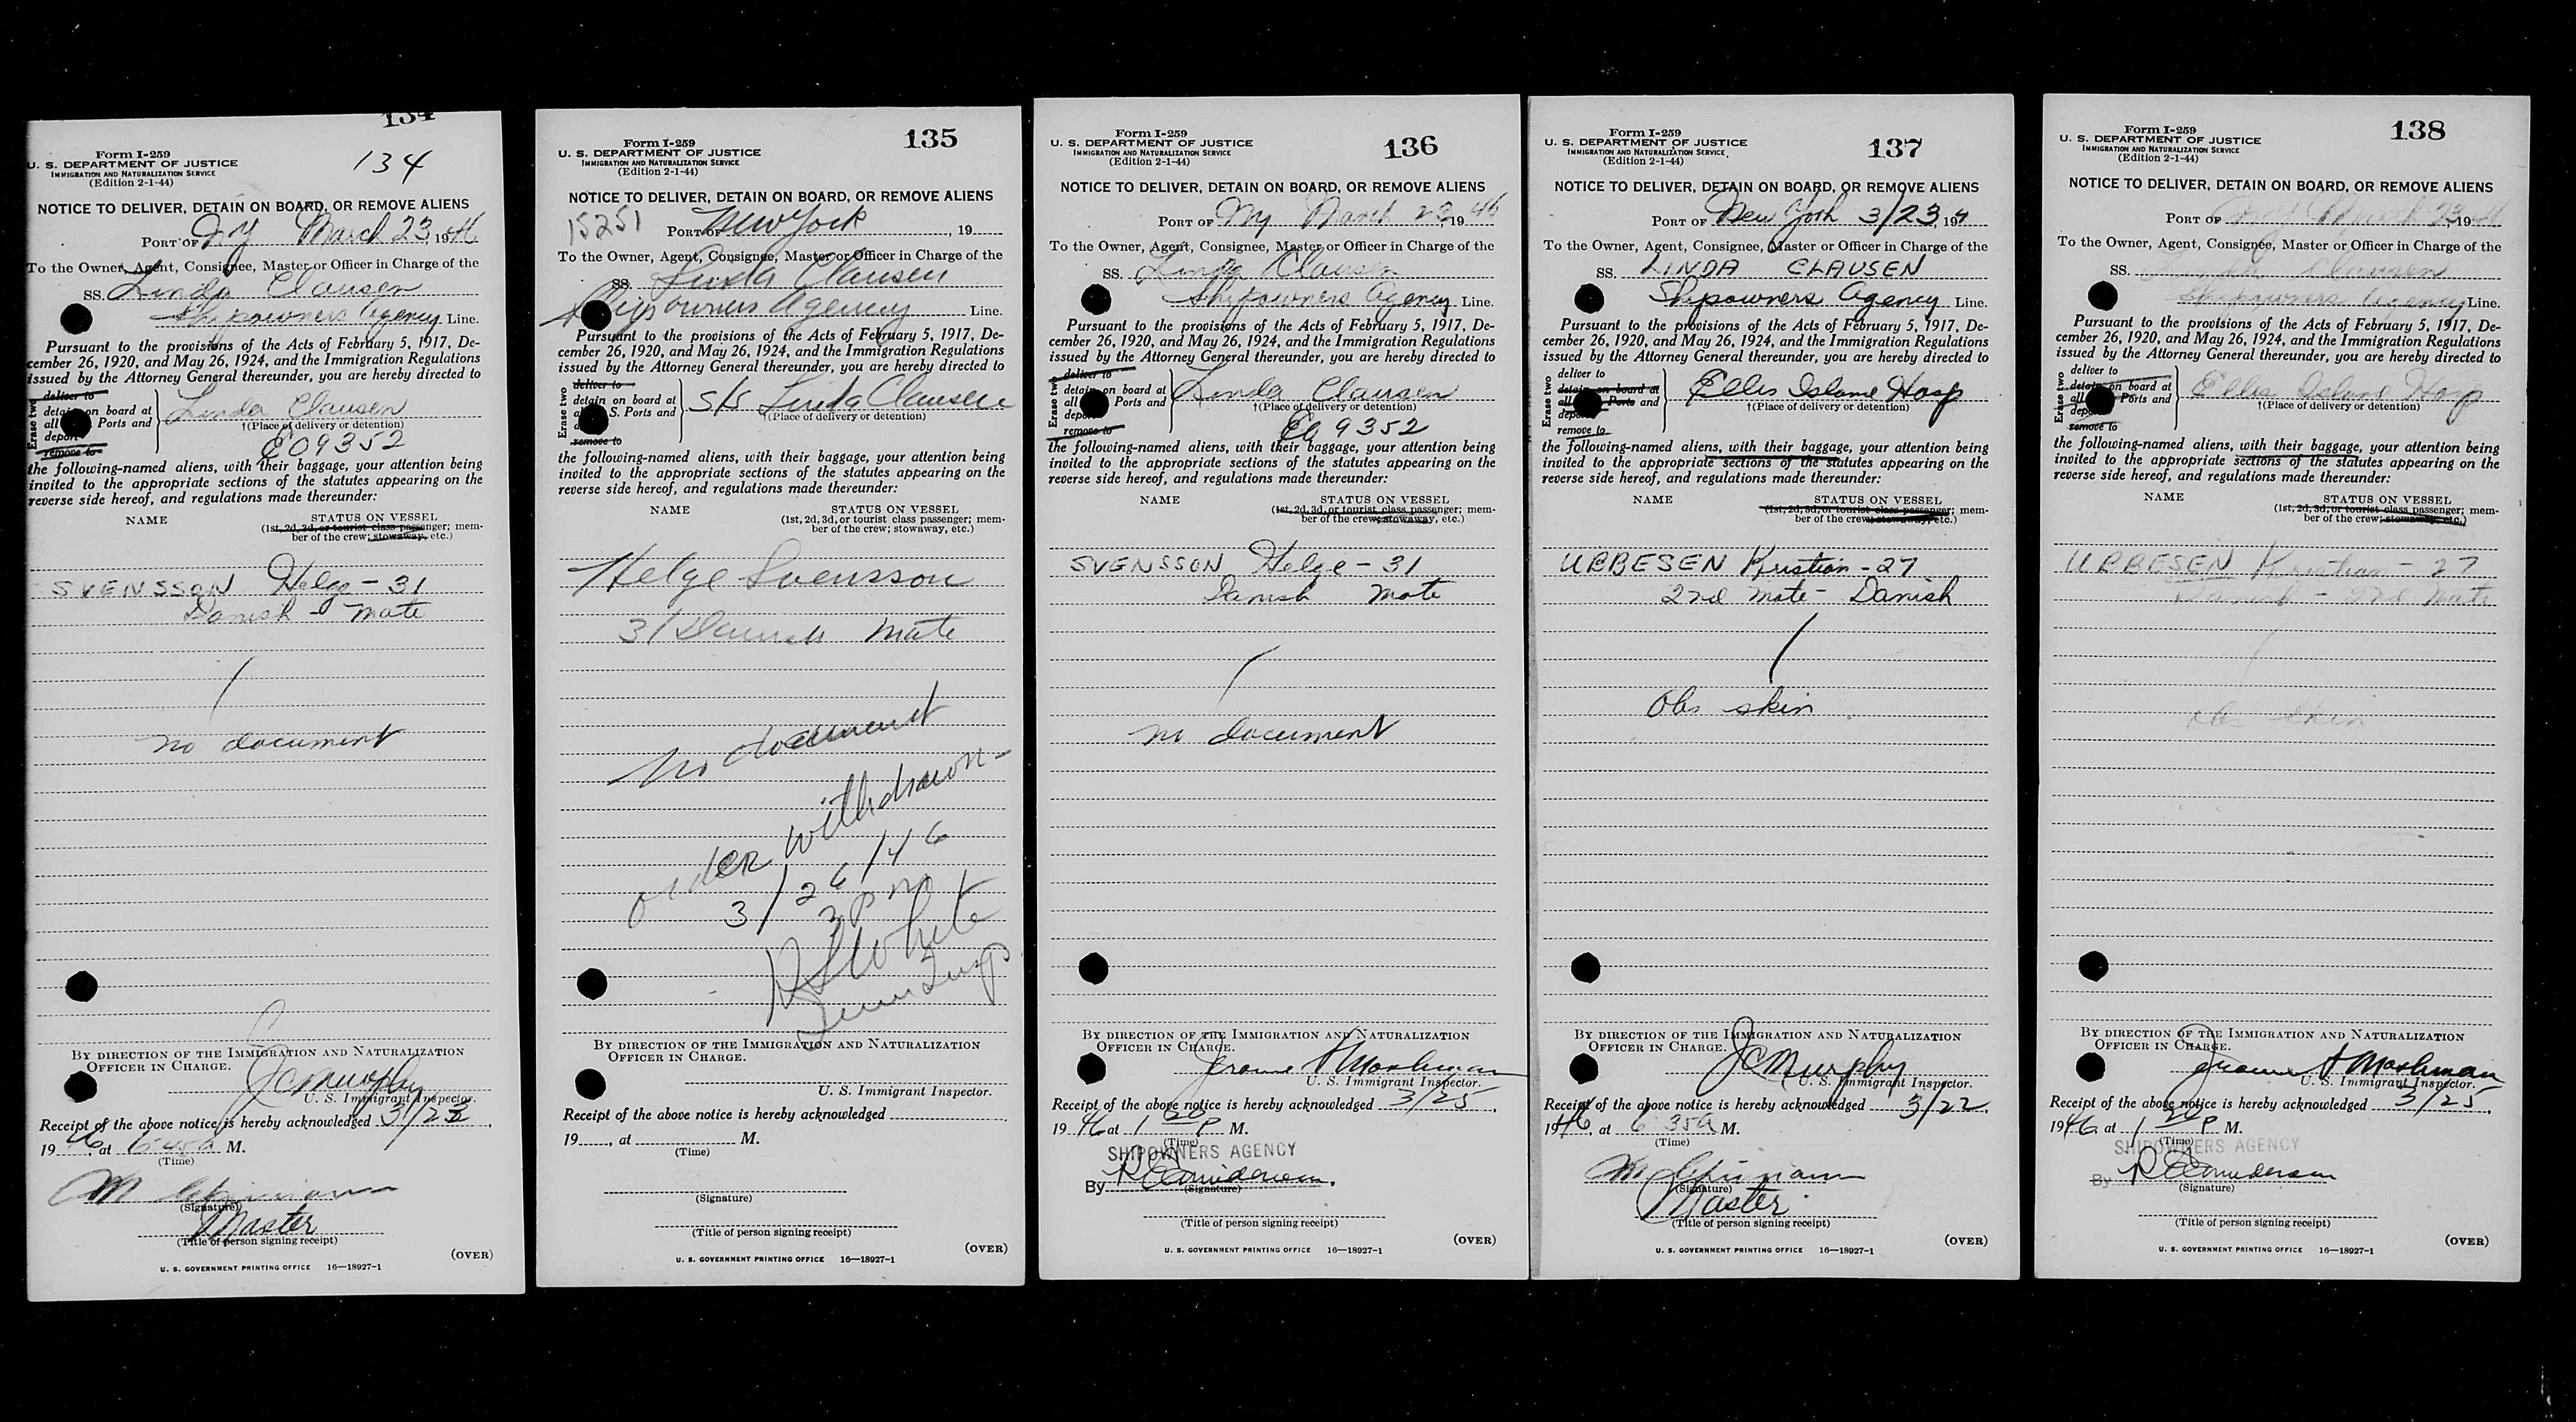 134
Form I-259
134
U. S. DEPARTMENT OF JUSTICE
IMMIGRATION AND NATURALIZATION SERVICE
(Edition 2-1-44)
NOTICE TO DELIVER, DETAIN ON BOARD, OR REMOVE ALIENS
PORT OF NY March 23, 1946
To the Owner, Agent, Consignee, Master or Officer in Charge of the
SS. Linda Clausen
Shipowners Agency Line.
Pursuant to the provisions of the Acts of February 5, 1917, De-
cember 26, 1920, and May 26, 1924, and the Immigration Regulations
issued by the Attorney General thereunder, you are hereby directed to
Erase two
deliver to
detain on board at
all Ports and
deport
remove to
Linda Clausen
†(Place of delivery or detention)
E09352
the following-named aliens, with their baggage, your attention being
invited to the appropriate sections of the statutes appearing on the
reverse side hereof, and regulations made thereunder:
NAME STATUS ON VESSEL
(1st, 2d, 3d, or tourist class passenger; mem-
ber of the crew; stowaway, etc.)
SVENSSON Helge - 31
Danish - Mate
/
no document
BY DIRECTION OF THE IMMIGRATION AND NATURALIZATION
OFFICER IN CHARGE.
JC Murphy
U. S. Immigrant Inspector.
Receipt of the above notice is hereby acknowledged 3/23,
1946, at 6 45a M.
(Time)
(Signature)
Master
(Title of person signing receipt)
(OVER)
U. S. GOVERNMENT PRINTING OFFICE 16—18927-1
135
Form I-259
U. S. DEPARTMENT OF JUSTICE
IMMIGRATION AND NATURALIZATION SERVICE
(Edition 2-1-44)
NOTICE TO DELIVER, DETAIN ON BOARD, OR REMOVE ALIENS
15251 PORT OF New York, 19
To the Owner, Agent, Consignee, Master or Officer in Charge of the
SS. Linda Clausen
Shipowners Agency Line.
Pursuant to the provisions of the Acts of February 5, 1917, De-
cember 26, 1920, and May 26, 1924, and the Immigration Regulations
issued by the Attorney General thereunder, you are hereby directed to
Erase two
deliver to
detain on board at
S. Ports and
remove to
S/S Linda Clausen
†(Place of delivery or detention)
the following-named aliens, with their baggage, your attention being
invited to the appropriate sections of the statutes appearing on the
reverse side hereof, and regulations made thereunder:
NAME STATUS ON VESSEL
(1st, 2d, 3d, or tourist class passenger; mem-
ber of the crew; stowaway, etc.)
Helge Svensson
31 Danish Mate
no document
order withdrawn -
3/26/46
3 pm
R S White
Imm Insp
BY DIRECTION OF THE IMMIGRATION AND NATURALIZATION
OFFICER IN CHARGE.
U. S. Immigrant Inspector.
Receipt of the above notice is hereby acknowledged ,
19 , at M.
(Time)
(Signature)
(Title of person signing receipt)
(OVER)
U. S. GOVERNMENT PRINTING OFFICE 16—18927-1
136
Form I-259
U. S. DEPARTMENT OF JUSTICE
IMMIGRATION AND NATURALIZATION SERVICE
(Edition 2-1-44)
NOTICE TO DELIVER, DETAIN ON BOARD, OR REMOVE ALIENS
PORT OF NY March 23, 1946
To the Owner, Agent, Consignee, Master or Officer in Charge of the
SS. Linda Clausen
Shipowners Agency Line.
Pursuant to the provisions of the Acts of February 5, 1917, De-
cember 26, 1920, and May 26, 1924, and the Immigration Regulations
issued by the Attorney General thereunder, you are hereby directed to
Erase two
deliver to
detain on board at
all Ports and
deport
remove to
Linda Clausen
†(Place of delivery or detention)
E09352
the following-named aliens, with their baggage, your attention being
invited to the appropriate sections of the statutes appearing on the
reverse side hereof, and regulations made thereunder:
NAME STATUS ON VESSEL
(1st, 2d, 3d, or tourist class passenger; mem-
ber of the crew; stowaway, etc.)
SVENSSON Helge - 31
Danish Mate
/
no document
BY DIRECTION OF THE IMMIGRATION AND NATURALIZATION
OFFICER IN CHARGE.
Jerome A Mashman
U. S. Immigrant Inspector.
Receipt of the above notice is hereby acknowledged 3/25,
1946 at 1 20 P M.
(Time)
SHIPOWNERS AGENCY
By
(Signature)
(Title of person signing receipt)
(OVER)
U. S. GOVERNMENT PRINTING OFFICE 16—18927-1
137
Form I-259
U. S. DEPARTMENT OF JUSTICE
IMMIGRATION AND NATURALIZATION SERVICE
(Edition 2-1-44)
NOTICE TO DELIVER, DETAIN ON BOARD, OR REMOVE ALIENS
PORT OF New York 3/23, 194
To the Owner, Agent, Consignee, Master or Officer in Charge of the
SS. LINDA CLAUSEN
Shipowners Agency Line.
Pursuant to the provisions of the Acts of February 5, 1917, De-
cember 26, 1920, and May 26, 1924, and the Immigration Regulations
issued by the Attorney General thereunder, you are hereby directed to
Erase two
deliver to
detain on board at
all Ports and
deport
remove to
Ellis Island Hosp
†(Place of delivery or detention)
the following-named aliens, with their baggage, your attention being
invited to the appropriate sections of the statutes appearing on the
reverse side hereof, and regulations made thereunder:
NAME STATUS ON VESSEL
(1st, 2d, 3d, or tourist class passenger; mem-
ber of the crew; stowaway, etc.)
UBBESEN Kristian - 27
2nd Mate - Danish
/
Obs skin
BY DIRECTION OF THE IMMIGRATION AND NATURALIZATION
OFFICER IN CHARGE.
JC Murphy
U. S. Immigrant Inspector.
Receipt of the above notice is hereby acknowledged 3/22,
1946, at 6 35a M.
(Time)
(Signature)
Master
(Title of person signing receipt)
(OVER)
U. S. GOVERNMENT PRINTING OFFICE 16—18927-1
138
Form I-259
U. S. DEPARTMENT OF JUSTICE
IMMIGRATION AND NATURALIZATION SERVICE
(Edition 2-1-44)
NOTICE TO DELIVER, DETAIN ON BOARD, OR REMOVE ALIENS
PORT OF NY March 23, 1946
To the Owner, Agent, Consignee, Master or Officer in Charge of the
SS. Linda Clausen
Shipowners Agency Line.
Pursuant to the provisions of the Acts of February 5, 1917, De-
cember 26, 1920, and May 26, 1924, and the Immigration Regulations
issued by the Attorney General thereunder, you are hereby directed to
Erase two
deliver to
detain on board at
all Ports and
deport
remove to
Ellis Island Hosp
†(Place of delivery or detention)
the following-named aliens, with their baggage, your attention being
invited to the appropriate sections of the statutes appearing on the
reverse side hereof, and regulations made thereunder:
NAME STATUS ON VESSEL
(1st, 2d, 3d, or tourist class passenger; mem-
ber of the crew; stowaway, etc.)
UBBESEN Kristian - 27
Danish - 2nd Mate
/
obs skin
BY DIRECTION OF THE IMMIGRATION AND NATURALIZATION
OFFICER IN CHARGE.
Jerome A Mashman
U. S. Immigrant Inspector.
Receipt of the above notice is hereby acknowledged 3/25,
1946, at 1 20 P M.
(Time)
SHIPOWNERS AGENCY
By
(Signature)
(Title of person signing receipt)
(OVER)
U. S. GOVERNMENT PRINTING OFFICE 16—18927-1